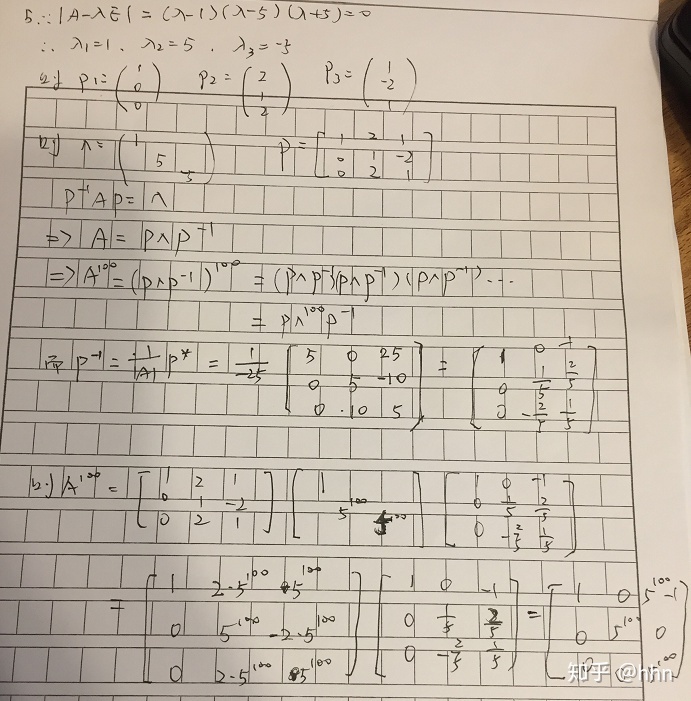 5. ∵ |A-λE| = (λ-1)(λ-5)(λ+5)=0
∴ λ₁=1, λ₂=5, λ₃=-5
P₁=(1 0 0) P₂=(2 1 2) P₃=(1 -2 1)
Λ=(1 5 -5) P=[1 2 1
0 1 -2
0 2 1]
P⁻¹AP=Λ
=> A=PΛP⁻¹
=> A¹⁰⁰=(PΛP⁻¹)¹⁰⁰ = (PΛP⁻¹)(PΛP⁻¹)(PΛP⁻¹)...
= PΛ¹⁰⁰P⁻¹
而 P⁻¹ = 1/|A| P* = 1/-25 [5 0 25
0 5 -10
0 -10 5] = [1 0 -1
0 1/5 2/5
0 -2/5 1/5]
A¹⁰⁰ = [1 2 1
0 1 -2
0 2 1] [1
5¹⁰⁰
5¹⁰⁰] [1 0 -1
0 1/5 2/5
0 -2/5 1/5]
= [1 2·5¹⁰⁰ 5¹⁰⁰
0 5¹⁰⁰ -2·5¹⁰⁰
0 2·5¹⁰⁰ 5¹⁰⁰] [1 0 -1
0 1/5 2/5
0 -2/5 1/5] = [1 0 5¹⁰⁰-1
0 5¹⁰⁰ 0
0 0 5¹⁰⁰]
知乎 @hhn